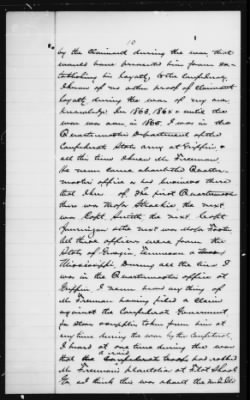 10
by the claimant during the war, that
would have prevented him from es-
tablishing his loyalty, to the Confederacy.
I know of no other proof of claimant's
loyalty during the war of my own
knowledge. In 1863, 1864 & until the
war was over in 1865, I was in the
Quartermasters Department of the
Confederate State army at Griffin, &
all the time I knew Mr. Freeman.
He never came about the Quarter-
masters office & had business there
that I knew of. The first Quartermaster
there was Major the next
was Capt Smith the next Capt
the next was Major Foster
All these officers were from the
State of Georgia, Tennessee &
Mississippi. During all the time I
was in the Quartermasters office at
Griffin I never knew any thing of
Mr. Freeman having filed a claim
against the Confederate Government
for stores or supplies taken from him at
any time during the war by the Confederates.
I heard at one time during the war
that a raid had robbed
Mr Freeman's plantation at Flat Shoal
Ga I think this was about the middle